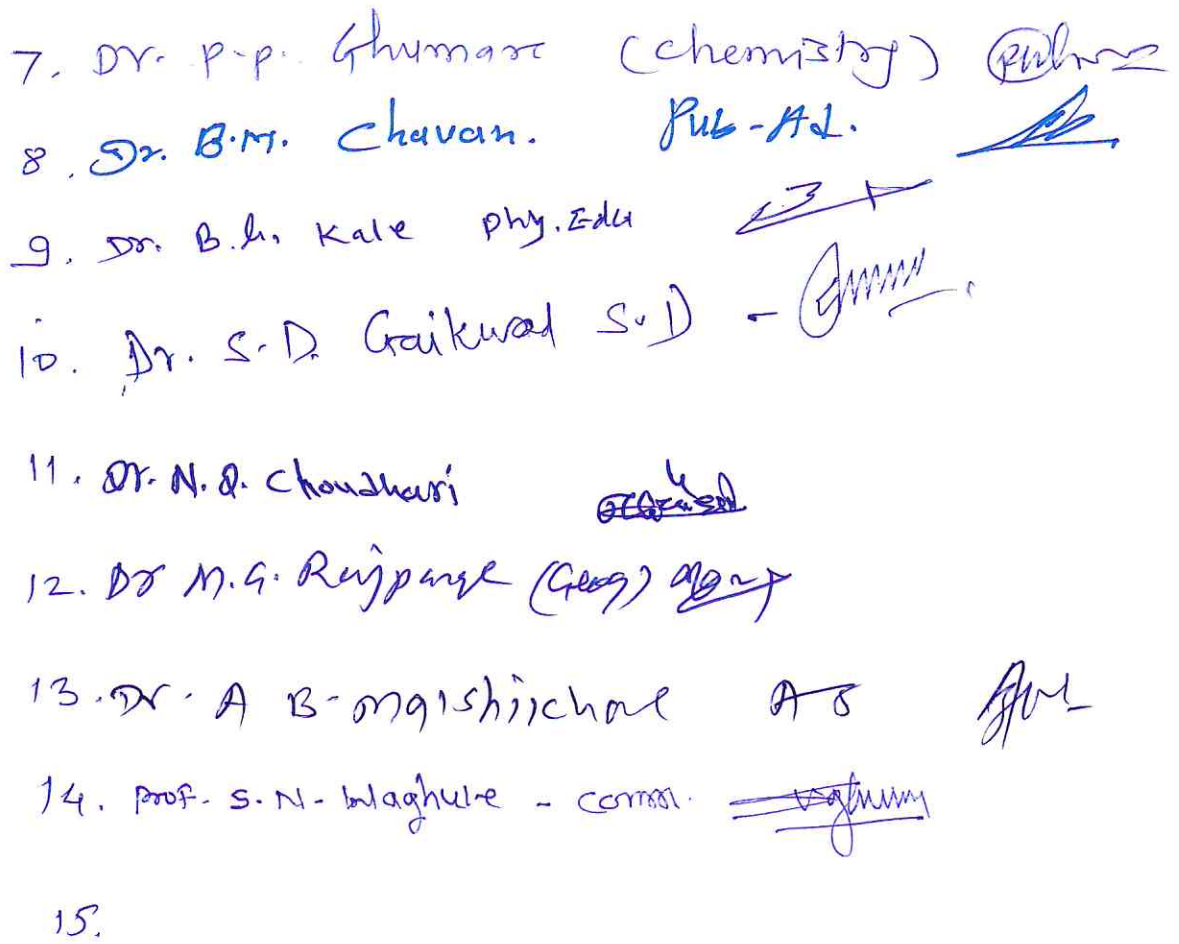 7. Dr. P.P. Ghumare (Chemistry)
8. Dr. B.M. Chavan. Pub-Ad.
9. Dr. B.G. Kale Phy. Edu
10. Dr. S.D. Gaikwad S.D -
11. Dr. N.Q. Choudhari
12. Dr M.G. Rajpange (Geog)
13. Dr. A B-
14. Prof. S.N. Waghule - comm.
15.